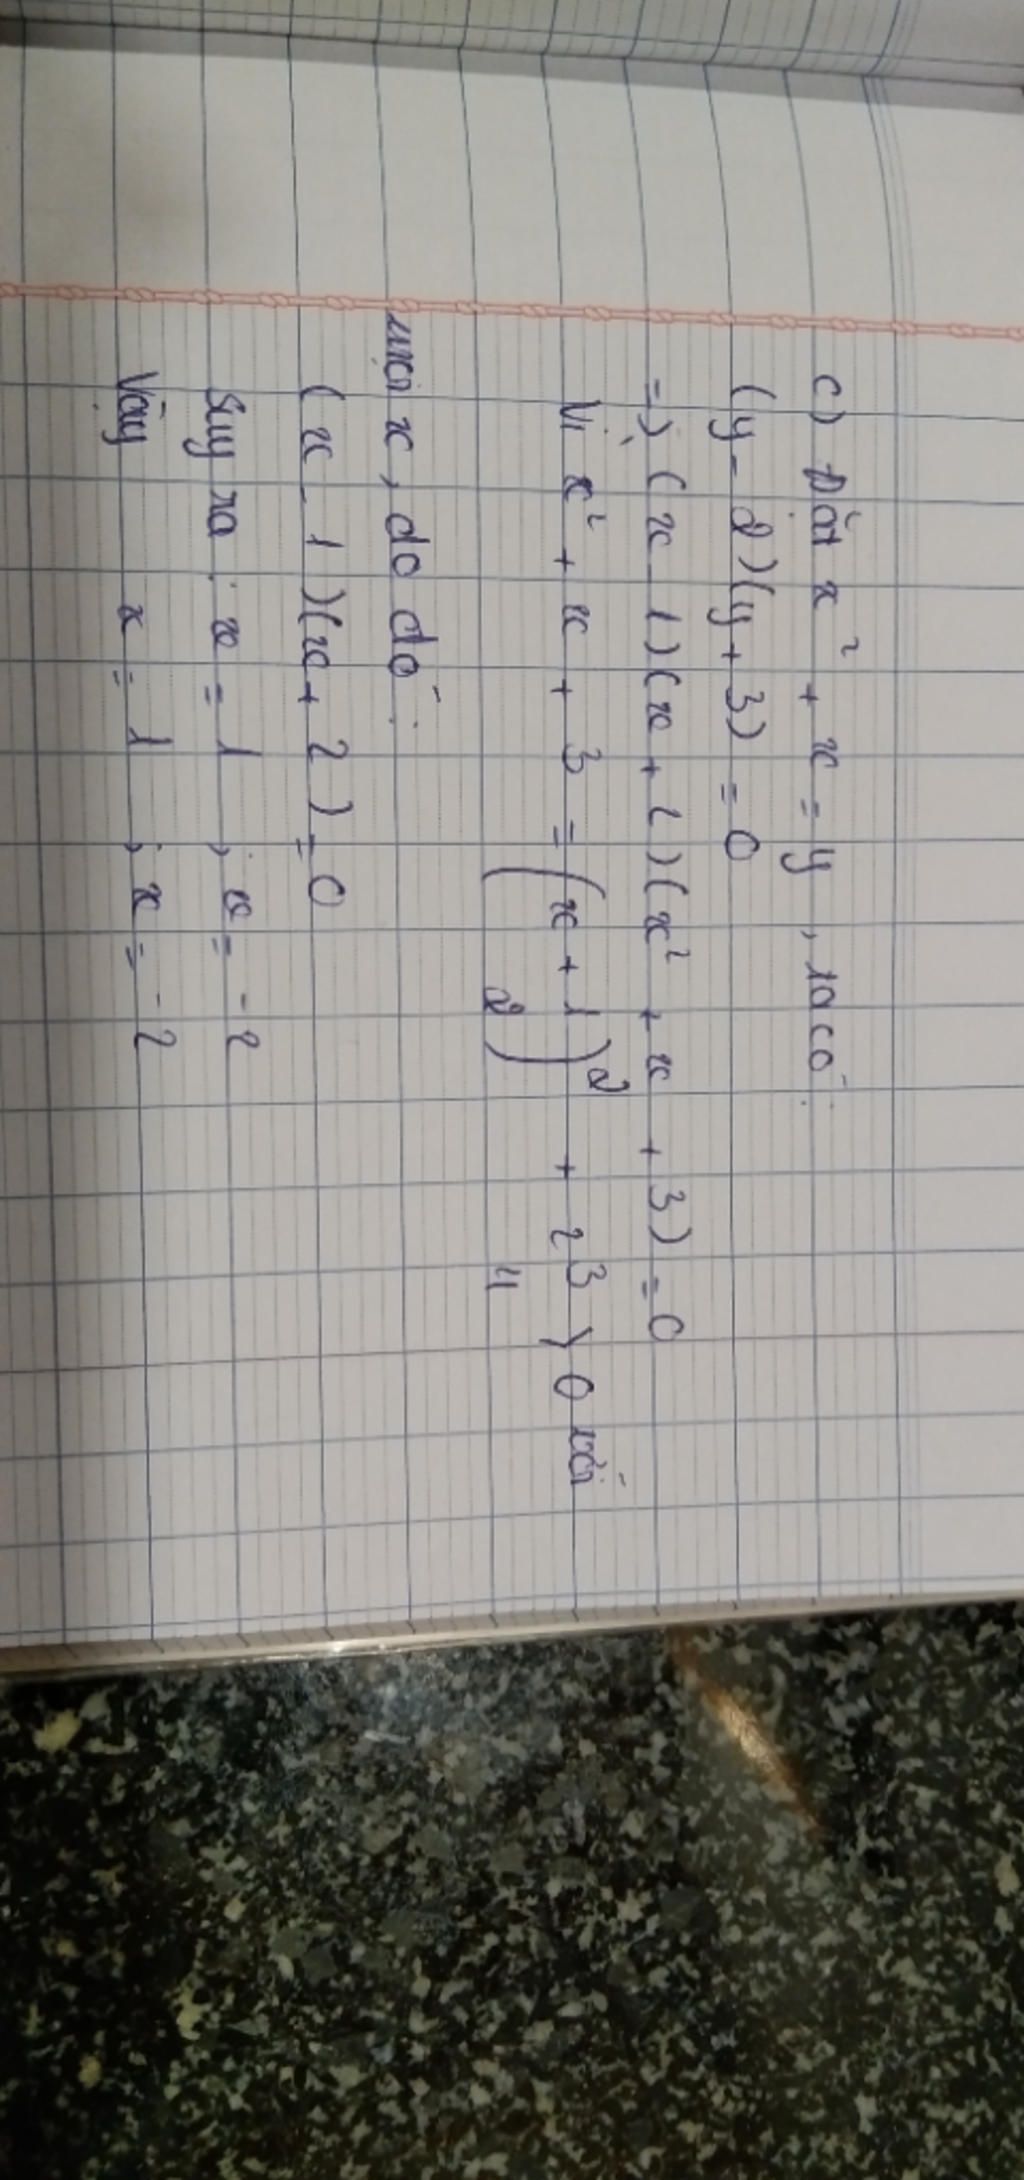 c) Đặt x² + x = y, ta có:
(y - 2)(y + 3) = 0
=> (x - 1)(x + 2)(x² + x + 3) = 0
Vì x² + x + 3 = (x + 1/2)² + 23/4 > 0 với
mọi x, do đó:
(x - 1)(x + 2) = 0
Suy ra: x = 1; x = -2
Vậy x = 1; x = -2